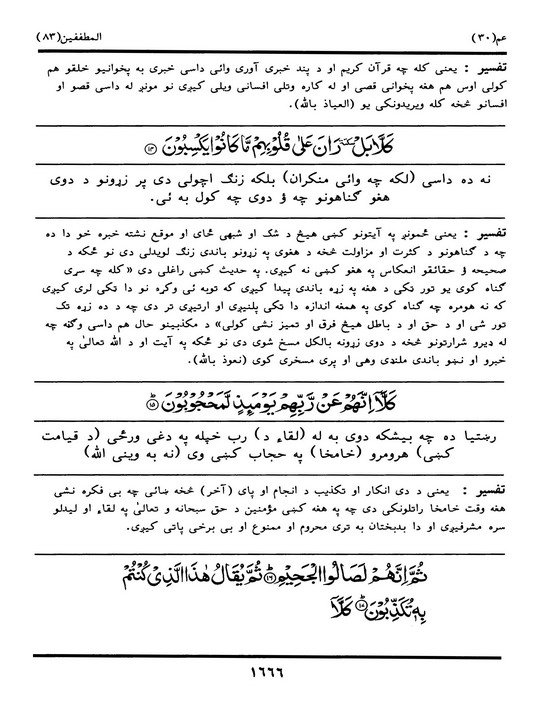 عم (۳۰) المطففین (۸۳)
تفسیر : یعنی کله چه قرآن کریم او د پند خبری آوری وائی داسی خبری به پخوانیو خلقو هم
کولی اوس هم هغه پخوانی قصی او له کاره وتلی افسانی ویلی کیږی نو مونږ له داسی قصو او
افسانو څخه کله ویریدونکی یو (العیاذ بالله).
كَلَّا بَلْ ۜ رَانَ عَلٰى قُلُوْبِهِمْ مَّا كَانُوْا يَكْسِبُوْنَ ⑭
نه ده داسی (لکه چه وائی منکران) بلکه زنګ اچولی دی پر زړونو د دوی
هغو ګناهونو چه ؤ دوی چه کول به ئی.
تفسیر : یعنی ځمونږ په آیتونو کښی هیڅ د شک او شبهی ځای او موقع نشته خبره خو دا ده
چه د ګناهونو د کثرت او مزاولت څخه د هغوی په زړونو باندی زنګ لویدلی دی نو ځکه د
صحیحه ؤ حقائقو انعکاس په هغو کښی نه کیږی. په حدیث کښی راغلی دی «کله چه سړی
ګناه کوی یو تور ټکی د هغه په زړه باندی پیدا کیږی که توبه ئی وکړه نو دا ټکی لری کیږی
که نه هومره چه ګناه کوی په همغه اندازه دا ټکی پلنیږی او ارتیږی تر دی چه د ده زړه تک
تور شی او د حق او د باطل هیڅ فرق او تمیز نشی کولی» د مکذبینو حال هم داسی وګڼه چه
له ډیرو شرارتونو څخه د دوی زړونه بالکل مسخ شوی دی نو ځکه په آیت او د الله تعالیٰ په
خبرو او نښو باندی ملنډی وهی او پری مسخری کوی (نعوذ بالله).
كَلَّآ اِنَّهُمْ عَنْ رَّبِّهِمْ يَوْمَىِٕذٍ لَّمَحْجُوْبُوْنَ ⑮
رښتیا ده چه بیشکه دوی به له (لقاء د) رب خپله په دغی ورځی (د قیامت
کښی) هرومرو (خامخا) په حجاب کښی وی (نه به وینی الله)
تفسیر : یعنی د دی انکار او تکذیب د انجام او پای (آخر) څخه ښائی چه بی فکره نشی
هغه وقت خامخا راتلونکی دی چه په هغه کښی مؤمنین د حق سبحانه و تعالیٰ په لقاء او لیدلو
سره مشرفیږی او دا بدبختان به تری محروم او ممنوع او بی برخی پاتی کیږی.
ثُمَّ اِنَّهُمْ لَصَالُوا الْجَحِيْمِ ⑯ ثُمَّ يُقَالُ هٰذَا الَّذِىْ كُنْتُمْ
بِهٖ تُكَذِّبُوْنَ ⑰ كَلَّآ
۱۶۶۶